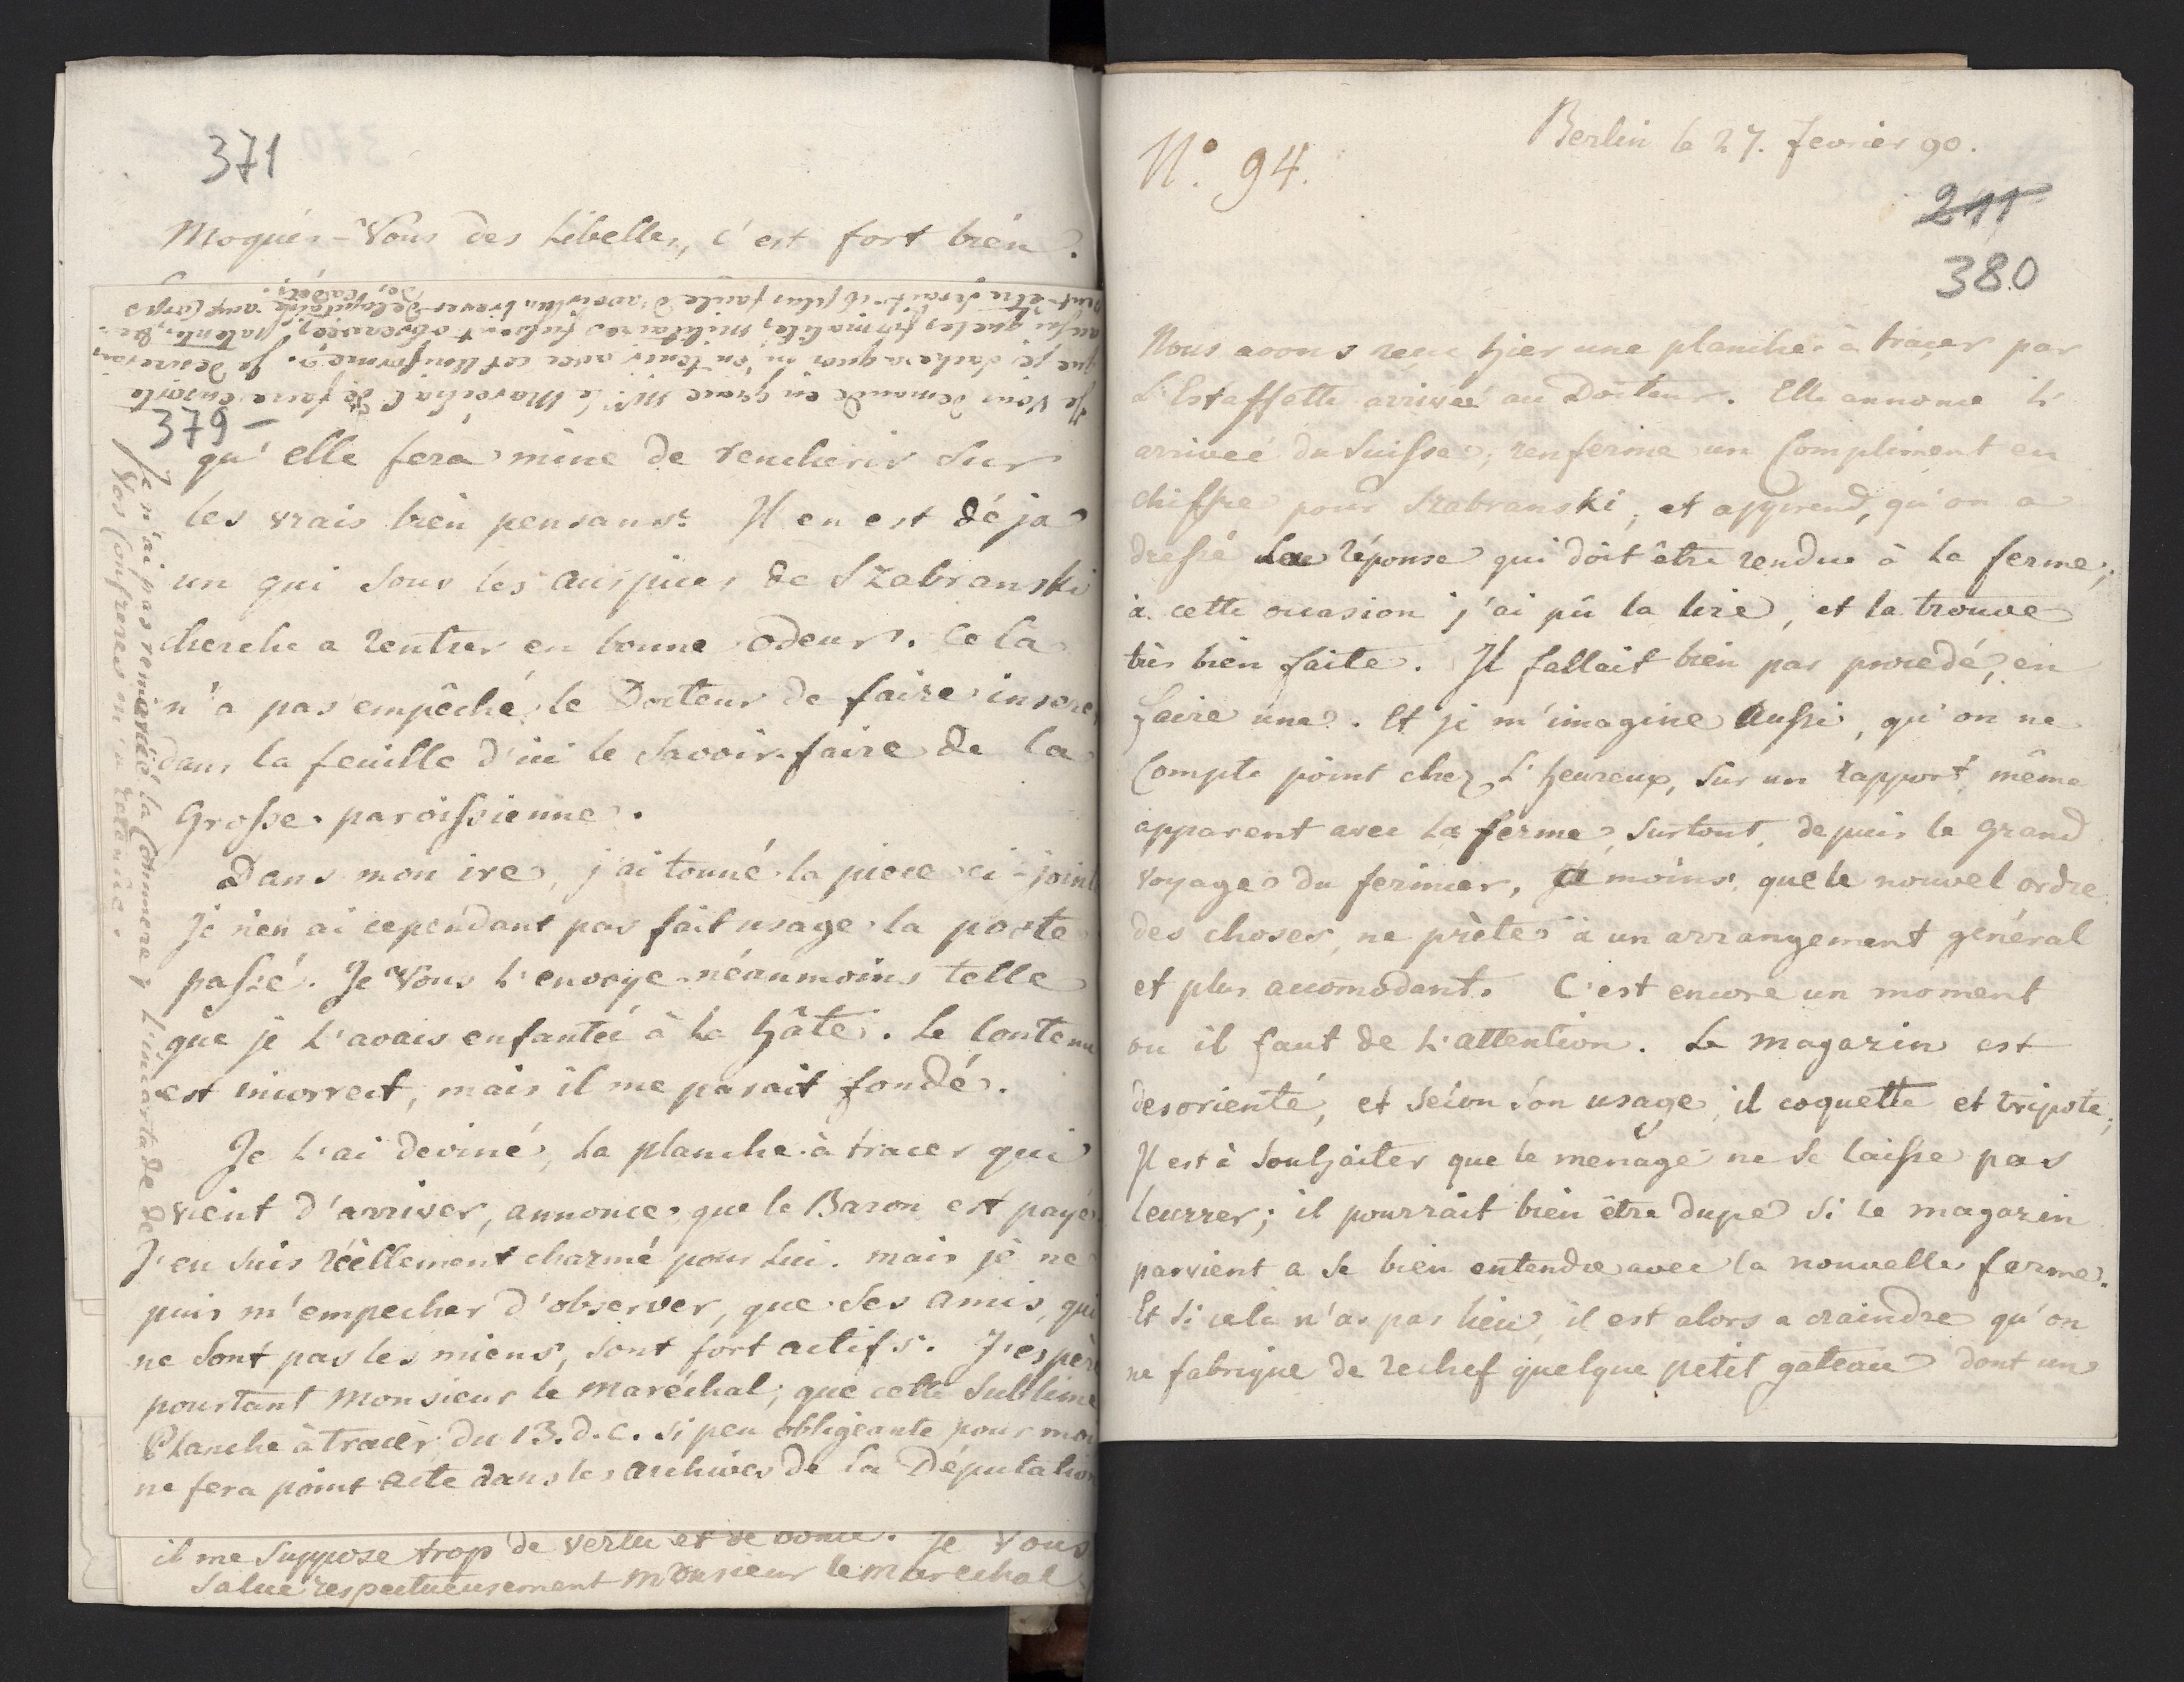 371
Moqués-Vous des Libelles, c'est fort bien.
Je Vous demande en grace Mr. le Marechal de faire ensorte
que je sache a quoi m'en tenir avec cet Uniforme. Je desirerais
aussi que les formalités militaires fussent observées, patente, &c.
peut-être serait-il plus facile d'avoir un brevet de Capitaine aux Corps
des Cadets.
379 -
qu'elle fera mine de rencherir sur
les vrais bien pensans. Il en est déja
un qui sous les auspices de Szabranski
cherche a rentrer en bonne odeur. Cela
n'a pas empêché le Docteur de faire inserer
dans la feuille d'ici le Savoir-faire de la
Grosse paroissienne.
Dans mon ire, j'ai tonné la piece ci-jointe
je n'en ai cependant pas fait usage la poste
passé. Je Vous l'envoye néanmoins telle
que je l'avais enfantée à la hâte. Le Contenu
est incorrect, mais il me parait fondé.
Je l'ai deviné, la planche à tracer qui
vient d'arriver, annonce que le Baron est payé
J'en suis réellement charmé pour lui. mais je ne
puis m'empecher d'observer, que ses amis, qui
ne sont pas les miens, sont fort actifs. J'espère
pourtant Monsieur le Maréchal; que cette Sublime
Planche à tracer du 13. d. c. si peu obligeante pour moi
ne fera point acte dans les archives de la Députation
Je n'ai pas remarqué la Commere; l'incartade de
Vos Confreres m'a retenue.
il me suppose trop de vertu et de bonté. Je Vous
salue respectueusement Monsieur le Marechal
N.° 94.
Berlin le 27. fevrier 90.
211
380
Nous avons reçu hier une planche à traçer par
L'Estaffette arrivée au Docteur. Elle annonce l'
arrivée du Suisse; renferme un Compliment en
chiffre pour Szabranski, et apprend, qu'on a
dressé La réponse qui doit être rendue à la ferme;
à cette occasion j'ai pû la lire, et la trouve
très bien faite. Il fallait bien par procedé, en
faire une. Et je m'imagine Aussi, qu'on ne
Compte point chez L'heureux, sur un rapport même
apparent avec La ferme, surtout, depuis le grand
voyage du fermier, à moins, que le nouvel ordre
des choses, ne prète à un arrangement général
et plus accomodant. C'est encore un moment
ou il faut de L'attention. Le magazin est
desorienté, et selon son usage, il coquette et tripote;
Il est à souhaiter que le menage ne se laisse pas
leurrer; il pourrait bien être dupe si le magazin
parvient a se bien entendre avec la nouvelle ferme.
Et si cela n'a pas lieu, il est alors a craindre qu'on
ne fabrique de rechef quelque petit gateau dont un